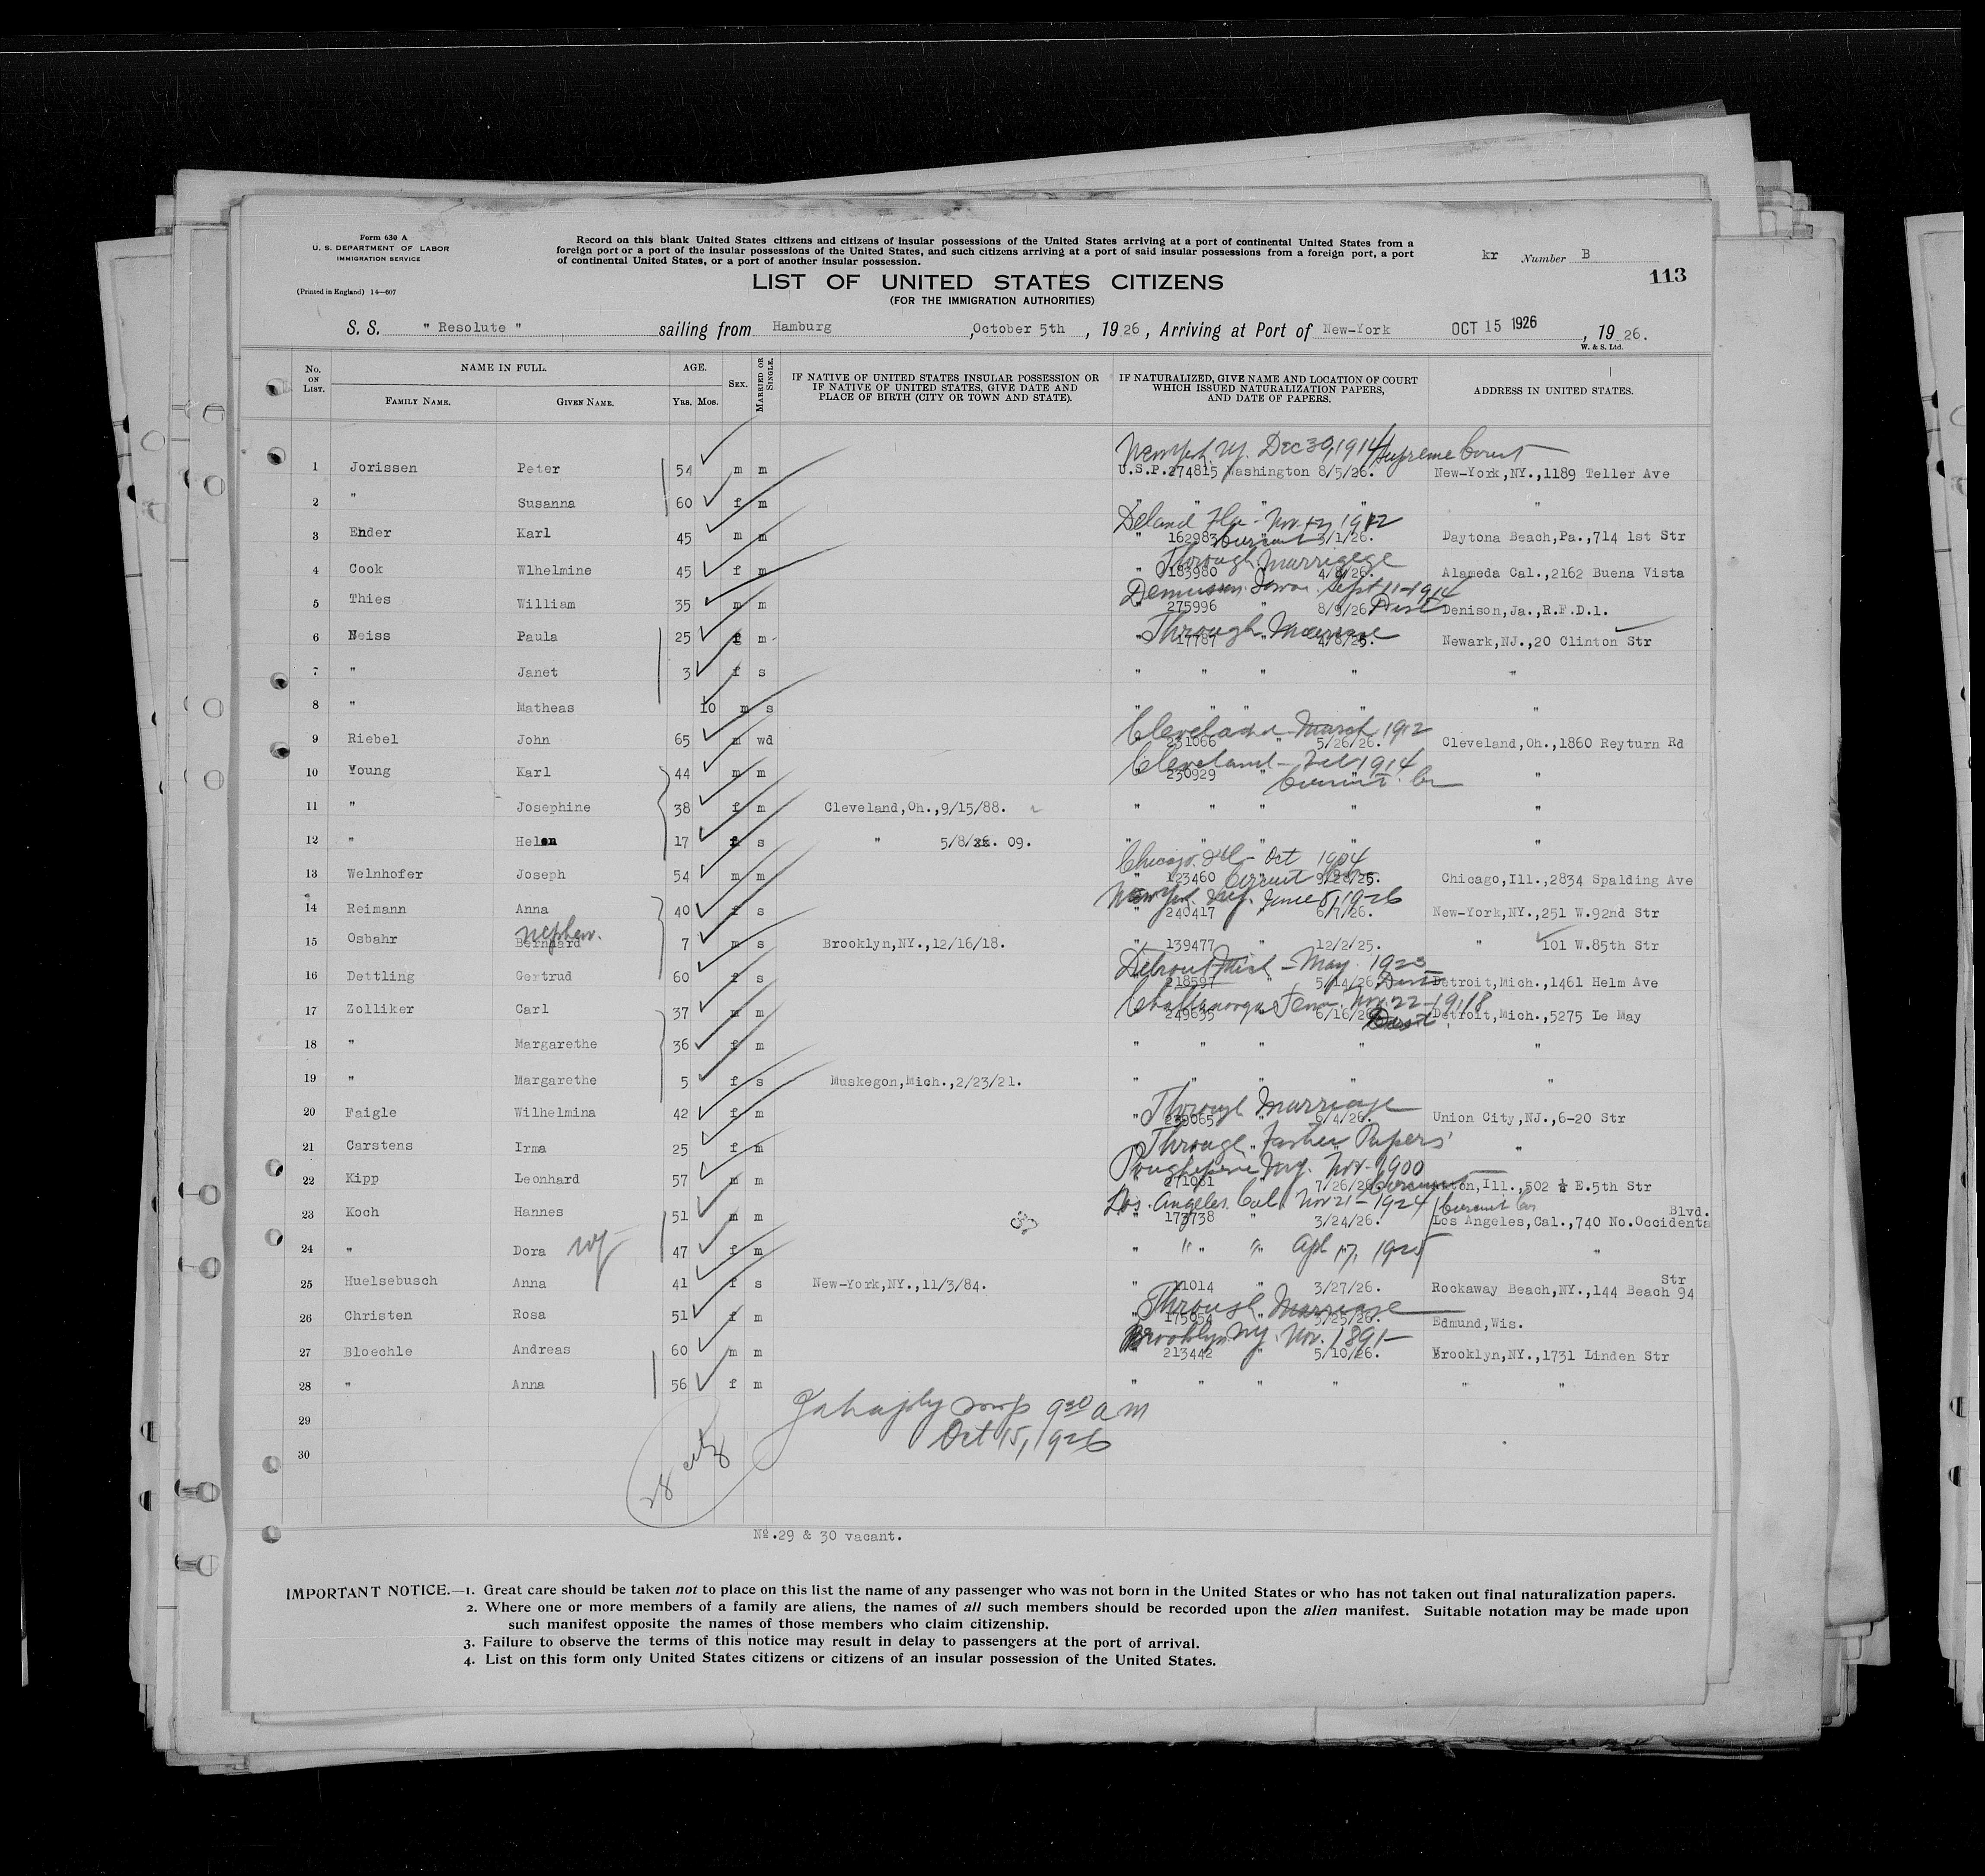 Form 630 A
U. S. DEPARTMENT OF LABOR
IMMIGRATION SERVICE
(Printed in England) 14—607
Record on this blank United States citizens and citizens of insular possessions of the United States arriving at a port of continental United States from a
foreign port or a port of the insular possessions of the United States, and such citizens arriving at a port of said insular possessions from a foreign port, a port
of continental United States, or a port of another insular possession.
kr Number B
113
LIST OF UNITED STATES CITIZENS
(FOR THE IMMIGRATION AUTHORITIES)
S. S. " Resolute " sailing from Hamburg , October 5th , 19 26 , Arriving at Port of New-York OCT 15 1926 , 19 26.
W. & S. Ltd.
No. ON LIST. NAME IN FULL. AGE. SEX. MARRIED OR SINGLE. IF NATIVE OF UNITED STATES INSULAR POSSESSION OR IF NATIVE OF UNITED STATES, GIVE DATE AND PLACE OF BIRTH (CITY OR TOWN AND STATE). IF NATURALIZED, GIVE NAME AND LOCATION OF COURT WHICH ISSUED NATURALIZATION PAPERS, AND DATE OF PAPERS. ADDRESS IN UNITED STATES.
FAMILY NAME. GIVEN NAME. YRS. MOS.
New York N.Y. Dec 30, 1914 Supreme Court
1 Jorissen Peter 54 m m U.S.P. 274815 Washington 8/5/26. New-York, NY., 1189 Teller Ave
2 " Susanna 60 f m " " " " "
Deland Fla - Nov 1912
3 Ender Karl 45 m m " 162983 3/1/26. Daytona Beach, Pa., 714 1st Str
Through Marriage
4 Cook Wlhelmine 45 f m " 183980 4/8/26. Alameda Cal., 2162 Buena Vista
Denison Iowa. Sept 11-1914
5 Thies William 35 m m 275996 " 8/9/26 Dist Denison, Ja., R.F.D.1.
Through Marriage
6 Neiss Paula 25 f m " 17787 " 4/8/25. Newark, NJ., 20 Clinton Str
7 " Janet 3 f s " " " " "
8 " Matheas 10 m s " " " " "
Cleveland March 1912
9 Riebel John 65 m wd 231066 " 5/26/26. Cleveland, Oh., 1860 Reyturn Rd
Cleveland - Feb 1914
10 Young Karl 44 m m 230929 " " "
11 " Josephine 38 f m Cleveland, Oh., 9/15/88. " " " " "
12 " Helen 17 f s " 5/8/ 09. " " " " "
Chicago Ill - Oct 1904
13 Welnhofer Joseph 54 m m " 123460 Circuit 9/28/25. Chicago, Ill., 2834 Spalding Ave
New York N.Y. June 8, 1926
14 Reimann Anna 40 f s " 240417 " 6/7/26. New-York, NY., 251 W. 92nd Str
nephew.
15 Osbahr Bernhard 7 m s Brooklyn, NY., 12/16/18. " 139477 " 12/2/25. " 101 W. 85th Str
Detroit Mich - May 1923
16 Dettling Gertrud 60 f s " 218597 5/14/26 Detroit, Mich., 1461 Helm Ave
Chattanooga Tenn. Nov. 22-1918
17 Zolliker Carl 37 m m " 249635 6/16/26 Detroit, Mich., 5275 Le May
18 " Margarethe 36 f m " " " " "
19 " Margarethe 5 f s Muskegon, Mich., 2/23/21. " " " " "
Through Marriage
20 Faigle Wilhelmina 42 f m " 239065 " 6/4/26. Union City, NJ., 6-20 Str
21 Carstens Irma 25 f m Through Father Papers "
Poughkeepsie N.Y. Nov - 1900
22 Kipp Leonhard 57 m m " 271061 " 7/26/26 ton, Ill., 502 ½ E. 5th Str
Los Angeles Cal Nov 21 - 1924 Circuit Blvd.
23 Koch Hannes 51 m m " 173738 " 3/24/26. Los Angeles, Cal., 740 No. Occidenta
24 " Dora wf 47 f m " " " Apl 17, 1925 "
Str
25 Huelsebusch Anna 41 f s New-York, NY., 11/3/84. " 11014 " 3/27/26. Rockaway Beach, NY., 144 Beach 94
Through Marriage
26 Christen Rosa 51 f m " 175654 3/25/26. Edmund, Wis.
Brooklyn N.Y. Nov. 1891
27 Bloechle Andreas 60 m m 213442 " 5/10/26. Brooklyn, NY., 1731 Linden Str
28 " Anna 56 f m " " " " " "
29
9 30 a m
Oct 15, 1926
30
28
No. 29 & 30 vacant.
IMPORTANT NOTICE.—1. Great care should be taken not to place on this list the name of any passenger who was not born in the United States or who has not taken out final naturalization papers.
2. Where one or more members of a family are aliens, the names of all such members should be recorded upon the alien manifest. Suitable notation may be made upon
such manifest opposite the names of those members who claim citizenship.
3. Failure to observe the terms of this notice may result in delay to passengers at the port of arrival.
4. List on this form only United States citizens or citizens of an insular possession of the United States.